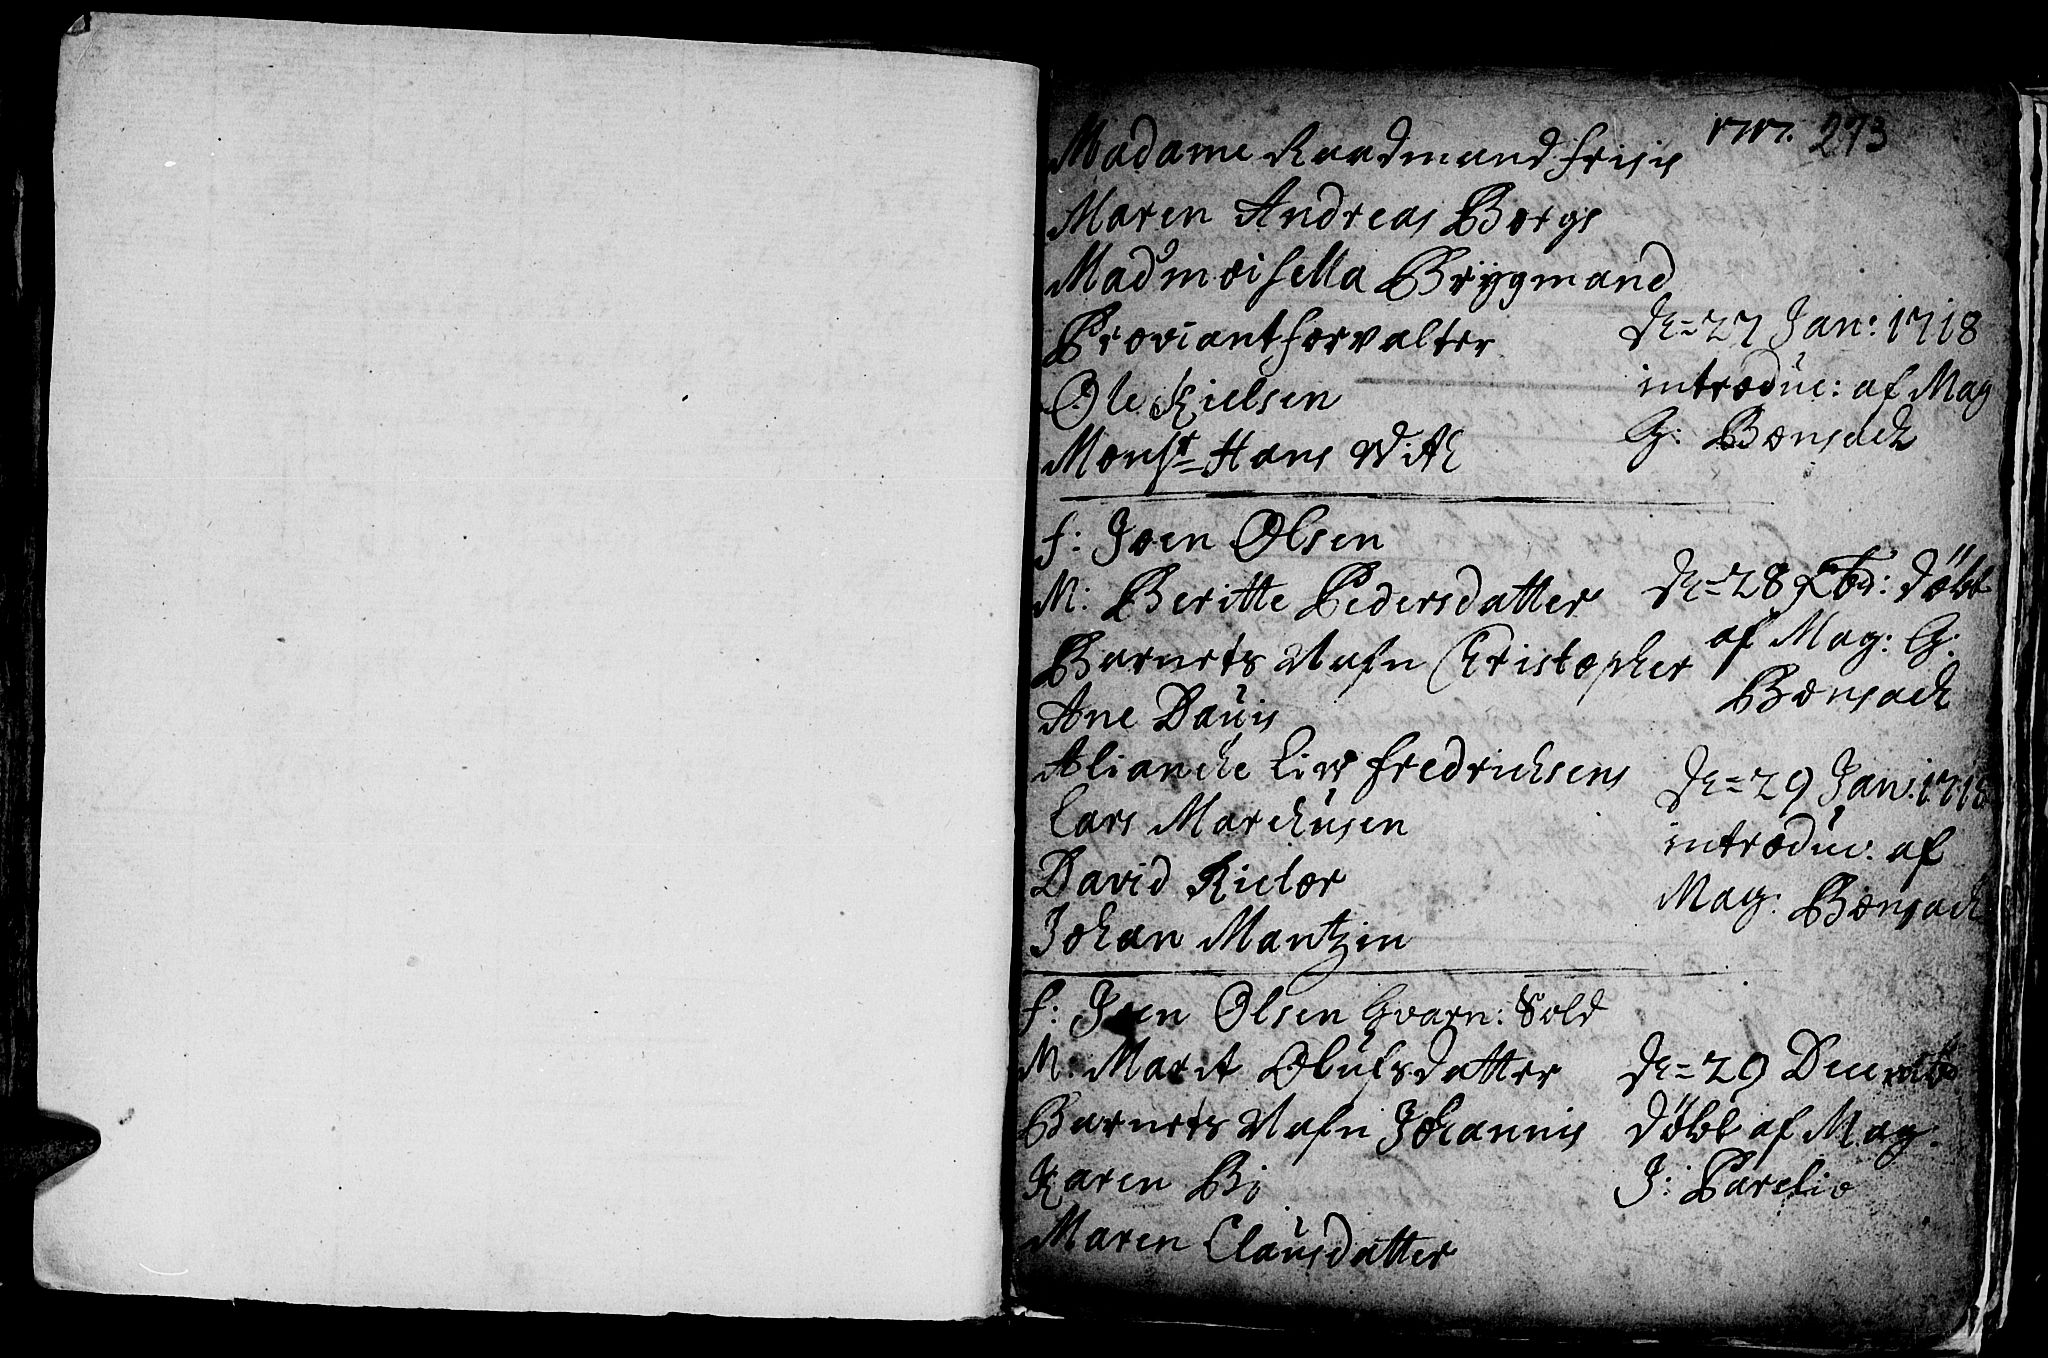 1717. 273
Madame Raadmand Frisis
Maren Andreas Borgs
Madmoisella Brygmand
Proviantforvalter
Ole Kielsen
Monsr Hans
d. 27 Jan: 1718
introduc: af Mag
G: Bonsach
f: Joen Olsen
M: Beritte Pedersdatter
Barnets Nafn Christopher
Ane Dauis
Aliancke Liv Fredrichsens
Lars Marchusen
David Rielor
Johan Mantzin
d. 28 Xbr: döbt
af Mag: G:
Bonsach
d. 29 Jan: 1718
introduc: af
Mag: Bonsach
f: Joen Olsen Gvarn: Sold
M: Marit Olufsdatter
Barnets Nafn Johannis
Karen Bi
Maren Clausdatter
d. 29 Decemb
döbt af Mag:
J: Parelio